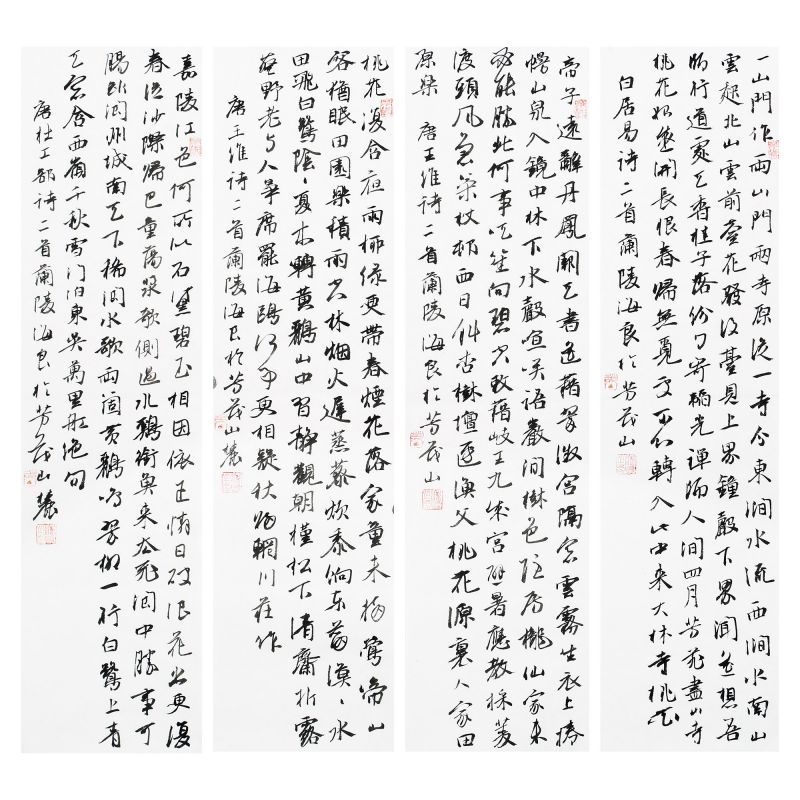 一山門作兩山門兩寺原從一寺分東澗水流西澗水南山
雲起北山雲前臺花發後臺見上界鐘聲下界聞遙想吾
師行道處天香桂子落紛〻寄韜光禪師人間四月芳菲盡山寺
桃花始盛開長恨春歸無覓處不知轉入此中來大林寺桃花
白居易詩二首蘭陵海良於芳茂山
帝子遠辭丹鳳闕天書遙藉翠微宮隔窗雲霧生衣上捲
幔山泉入鏡中林下水聲喧笑語巖間樹色隱房櫳仙家未
必能勝此何事吹笙向碧空敕藉岐王九成宮避暑應教採菱
渡頭風急策杖村西日斜杏樹壇邊漁父桃花源裏人家田
原樂 唐王維詩二首蘭陵海良於芳茂山
桃花復含宿雨柳綠更帶春煙花落家童未掃鶯啼山
客猶眠田園樂積雨空林烟火遲蒸藜炊黍餉東菑漠〻水
田飛白鷺陰〻夏木轉黃鸝山中習靜觀朝槿松下清齋折露
葵野老與人爭席罷海鷗何事更相疑秋歸輞川莊作
唐王維詩二首蘭陵海良於芳茂山麓
嘉陵江色何所似石黛碧玉相因依正憐日破浪花出更復
春從沙際歸巴童蕩槳欹側過水鷄銜魚來去飛閬中勝事可
腸斷閬州城南天下稀閬水歌兩箇黃鸝鳴翠柳一行白鷺上青
天窗含西嶺千秋雪門泊東吳萬里船絕句
唐杜工部詩二首蘭陵海良於芳茂山麓